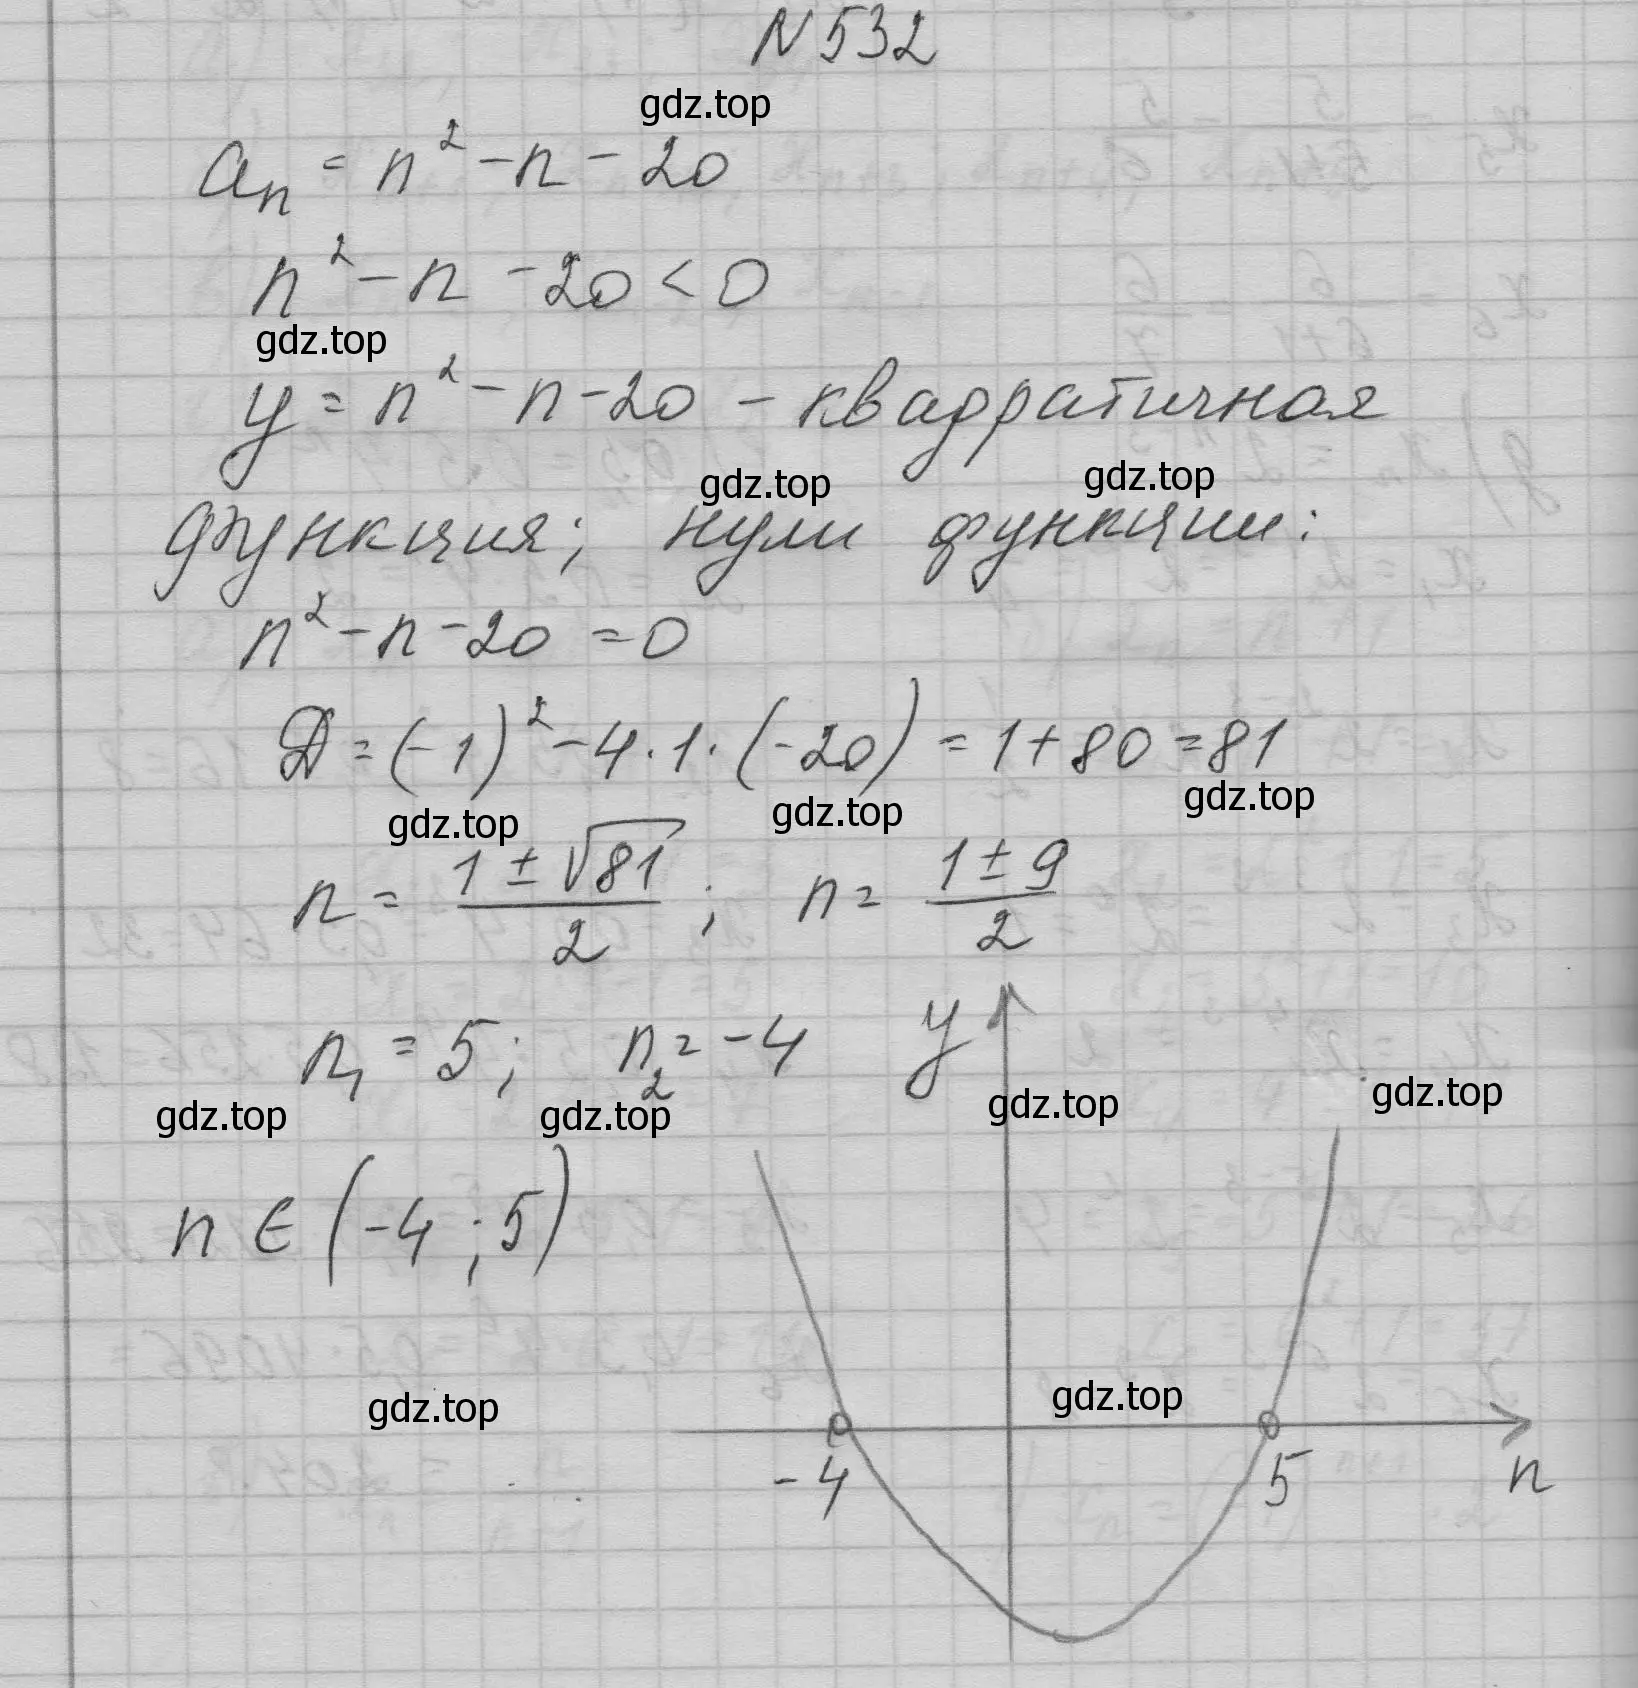 N 532
gdz.top
aₙ = n² - n - 20
n² - n - 20 < 0
gdz.top
y = n² - n - 20 - квадратичная
gdz.top gdz.top
функция; нули функции:
n² - n - 20 = 0
D = (-1)² - 4·1·(-20) = 1 + 80 = 81
gdz.top gdz.top gdz.top
n = (1 ± √81)/2; n = (1 ± 9)/2
n₁ = 5; n₂ = -4 y
gdz.top gdz.top gdz.top gdz.top
n ∈ (-4; 5)
gdz.top gdz.top
-4 5 n